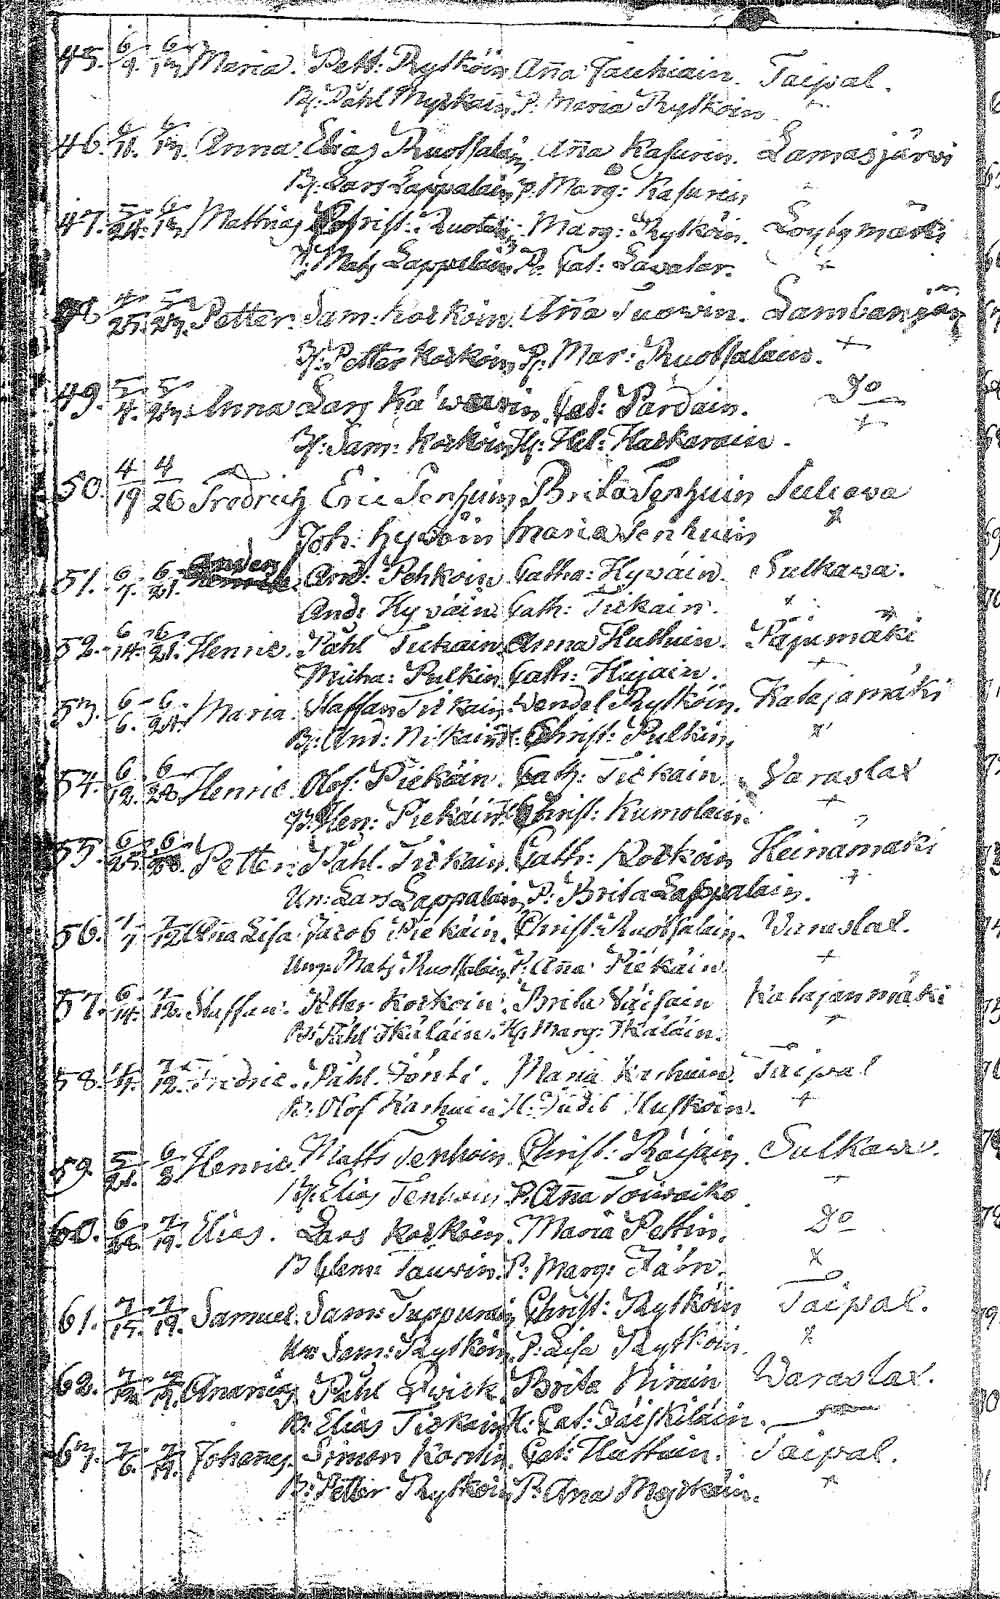 45. 6/9. 6/13 Maria. Pett: Rytköin Aña Jauhiain. Taipal.
B: Påhl Myrkain, P. Maria Rytkoin.
46. 6/11. 6/13. Anna Elias Ruotsalain Aña Kasurin. Lamasjärvi
B: Lars Lappalain P. Marg: Kasurin
47. 5/24. 6/13 Mathias Christ: Ruotsalain Marg: Rytköin. Löytymäki
B: Mats Lappalain P. Cat: Lavater.
48. 4/25. 5/23. Petter. Sam: Korkoin. Aña Tuovin.
B: Petter Korkoin P: Mar: Ruotsalain.
49. 5/4. 5/23. Anna Lars Cat: Pardain. Do
B: Sam: Korkoin H: Hel:
50. 4/19 4/26 Fredrich Eric Tenhuin Brita Tenhuin Sulcava
Joh: Hyväin Maria Tenhuin
51. 6/7. 6/21. Anders And: Pehkoin Catha: Hyväin. Sulkawa.
And: Hyväin Cath: Tirkain.
52. 6/14. 6/21. Henric. Påhl Tirkain Anna Huttuin. Pajumäki
Micha: Pulkin Cath: Hajain.
53. 6/6. 6/24. Maria. Staffan Tirkain Wendel Rytköin. Katajamäki
B: And: Tirkain H: Christ: Pulkin.
54. 6/12. 6/28 Henric Olof: Piekäin. Cath: Tirkain Varaslax
B: Hen: Piekäin H: Christ: Kumolain.
55. 6/25. 6/28. Petter Påhl. Tirkain. Cath: Korkoin Heinämäki
Un: Lars Lappalain P: Brita Lappalain.
56. 7/7 7/12 Aña Lisa Jacob Piekäin. Christ: Ruotsalain. Varaslax.
Ung: Mats Ruotsalain P: Aña Piekäin
57. 6/14. 7/12. Staffan. Petter Korkoin. Brita Väisäin Katajanmäki
B: Påhl Ikäläin. H: Marg: Ikäläin.
58. 7/12. Fredric. Påhl. Maria Karhuin. Taipal
B: Olof Karhuin H: Judit Huskoin.
59. 5/21. 6/8 Henric. Matts Tenhoin. Christ: Räisäin. Sulkawa.
B: Elias Tenhoin P. Aña Toiwaiko
60. 6/28. 7/19. Elias. Lars Korkoin. Maria Pettin. Do
B Clem: Tauvin. P: Marg:
61. 7/15. 7/19. Samuel. Sam: Tuppurain Christ: Rytköin Taipal.
Un: Sam: Rytköin. P. Lisa Rytköin.
62. 7/12. 7/19. Ananias Påhl Qvick Brita Nirain Varaslax.
B: Elias Tirkain H: Cat: Jäiskiläin.
63. 7/6. 7/19. Johanes Simon Cat: Huttuin. Taipal.
B: Petter Rytköin P: Ana Myrkäin.